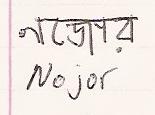 নজোর
Nojor